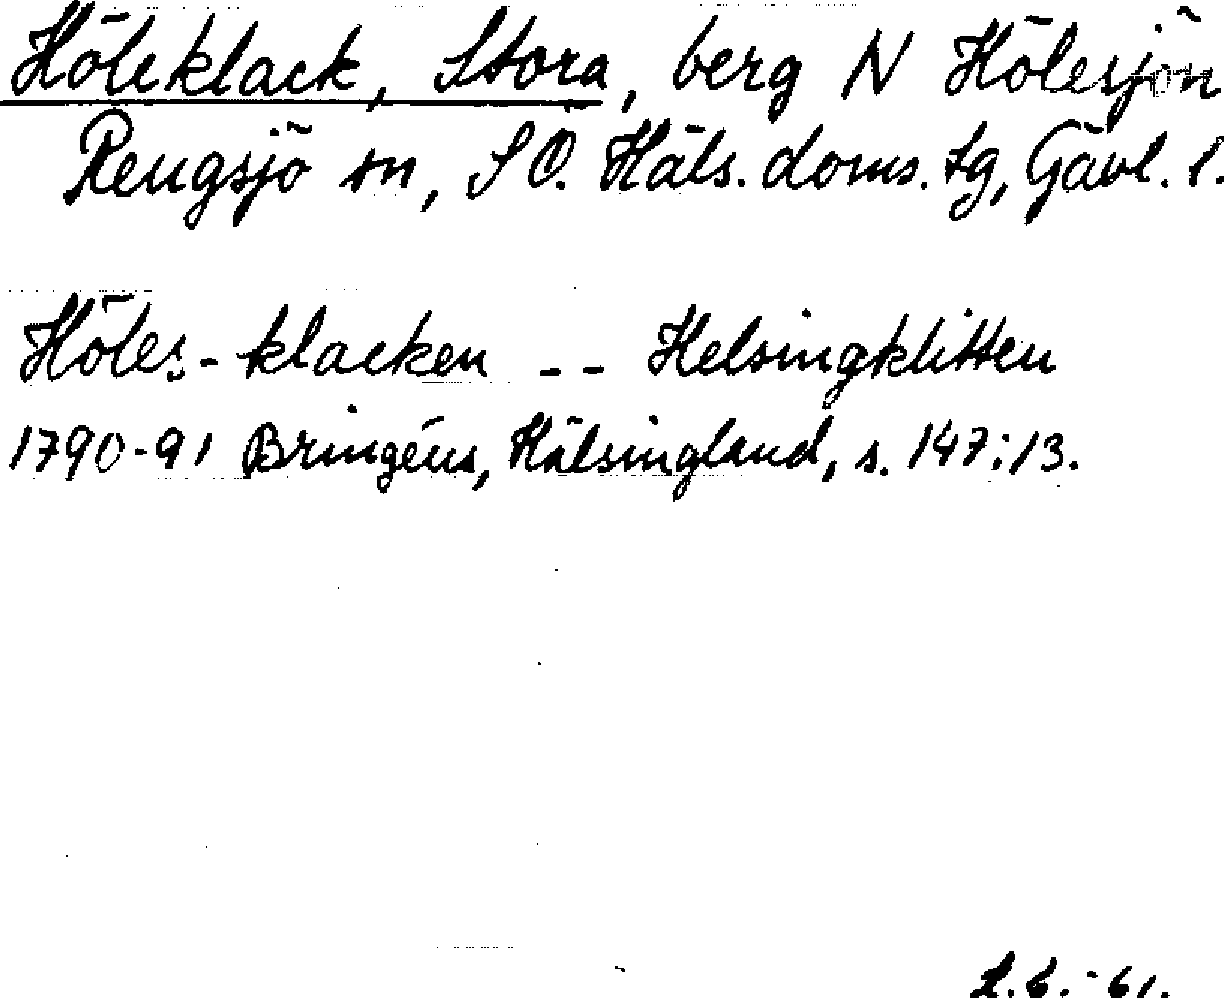 Höleklack, Stora, berg N Hölesjön
Rengsjö sn, SÖ. Häls. doms. tg, Gävl. l.
Höles-klacken -- Helsingklitten
1790-91 Bringéus, Hälsingland, s. 147:13.